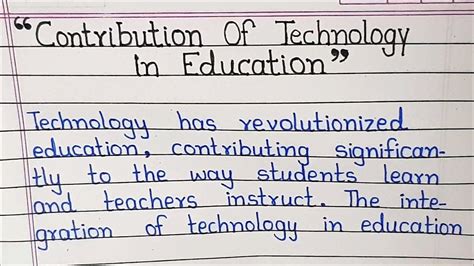 “Contribution Of Technology
In Education”
Technology has revolutionized
education, contributing significan-
tly to the way students learn
and teachers instruct. The inte-
gration of technology in education